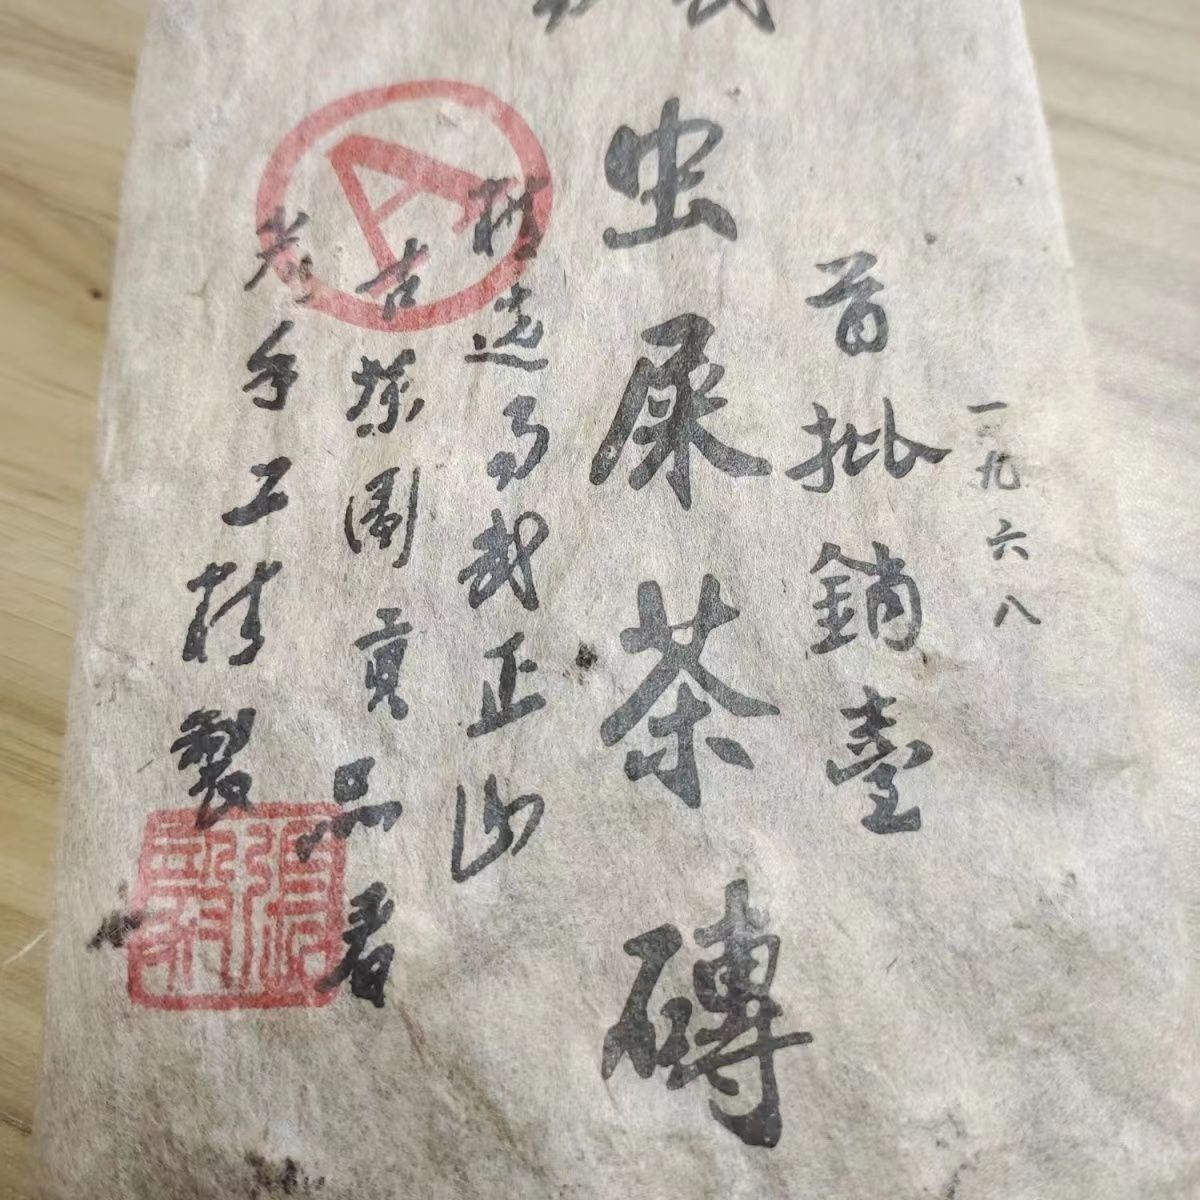 一九六八
首批銷臺
虫屎茶磚
精选易武正山
古茶園貢品
老手工精製
A